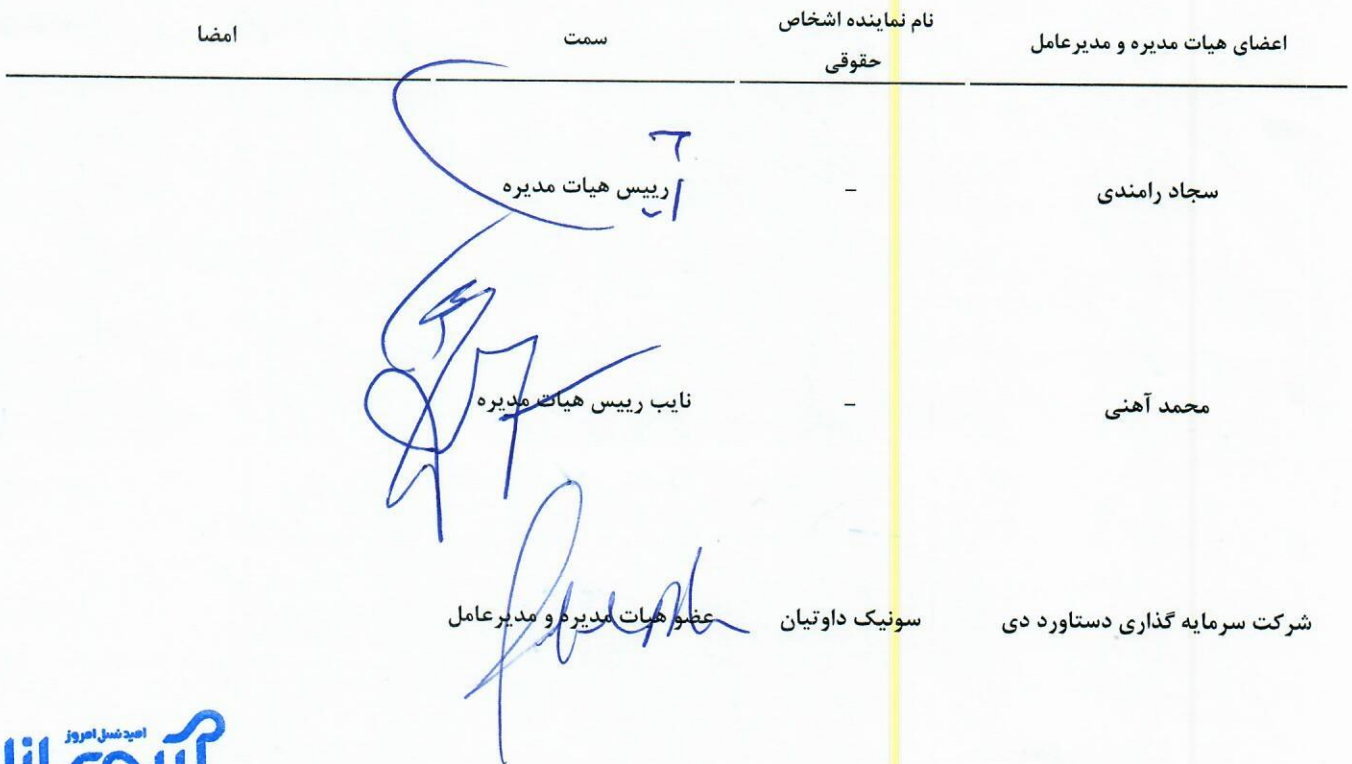 اعضای هیات مدیره و مدیرعامل نام نماینده اشخاص حقوقی سمت امضا
سجاد رامندی – رییس هیات مدیره
محمد آهنی – نایب رییس هیات مدیره
شرکت سرمایه گذاری دستاورد دی سونیک داوتیان عضو هیات مدیره و مدیرعامل
امید نسل امروز